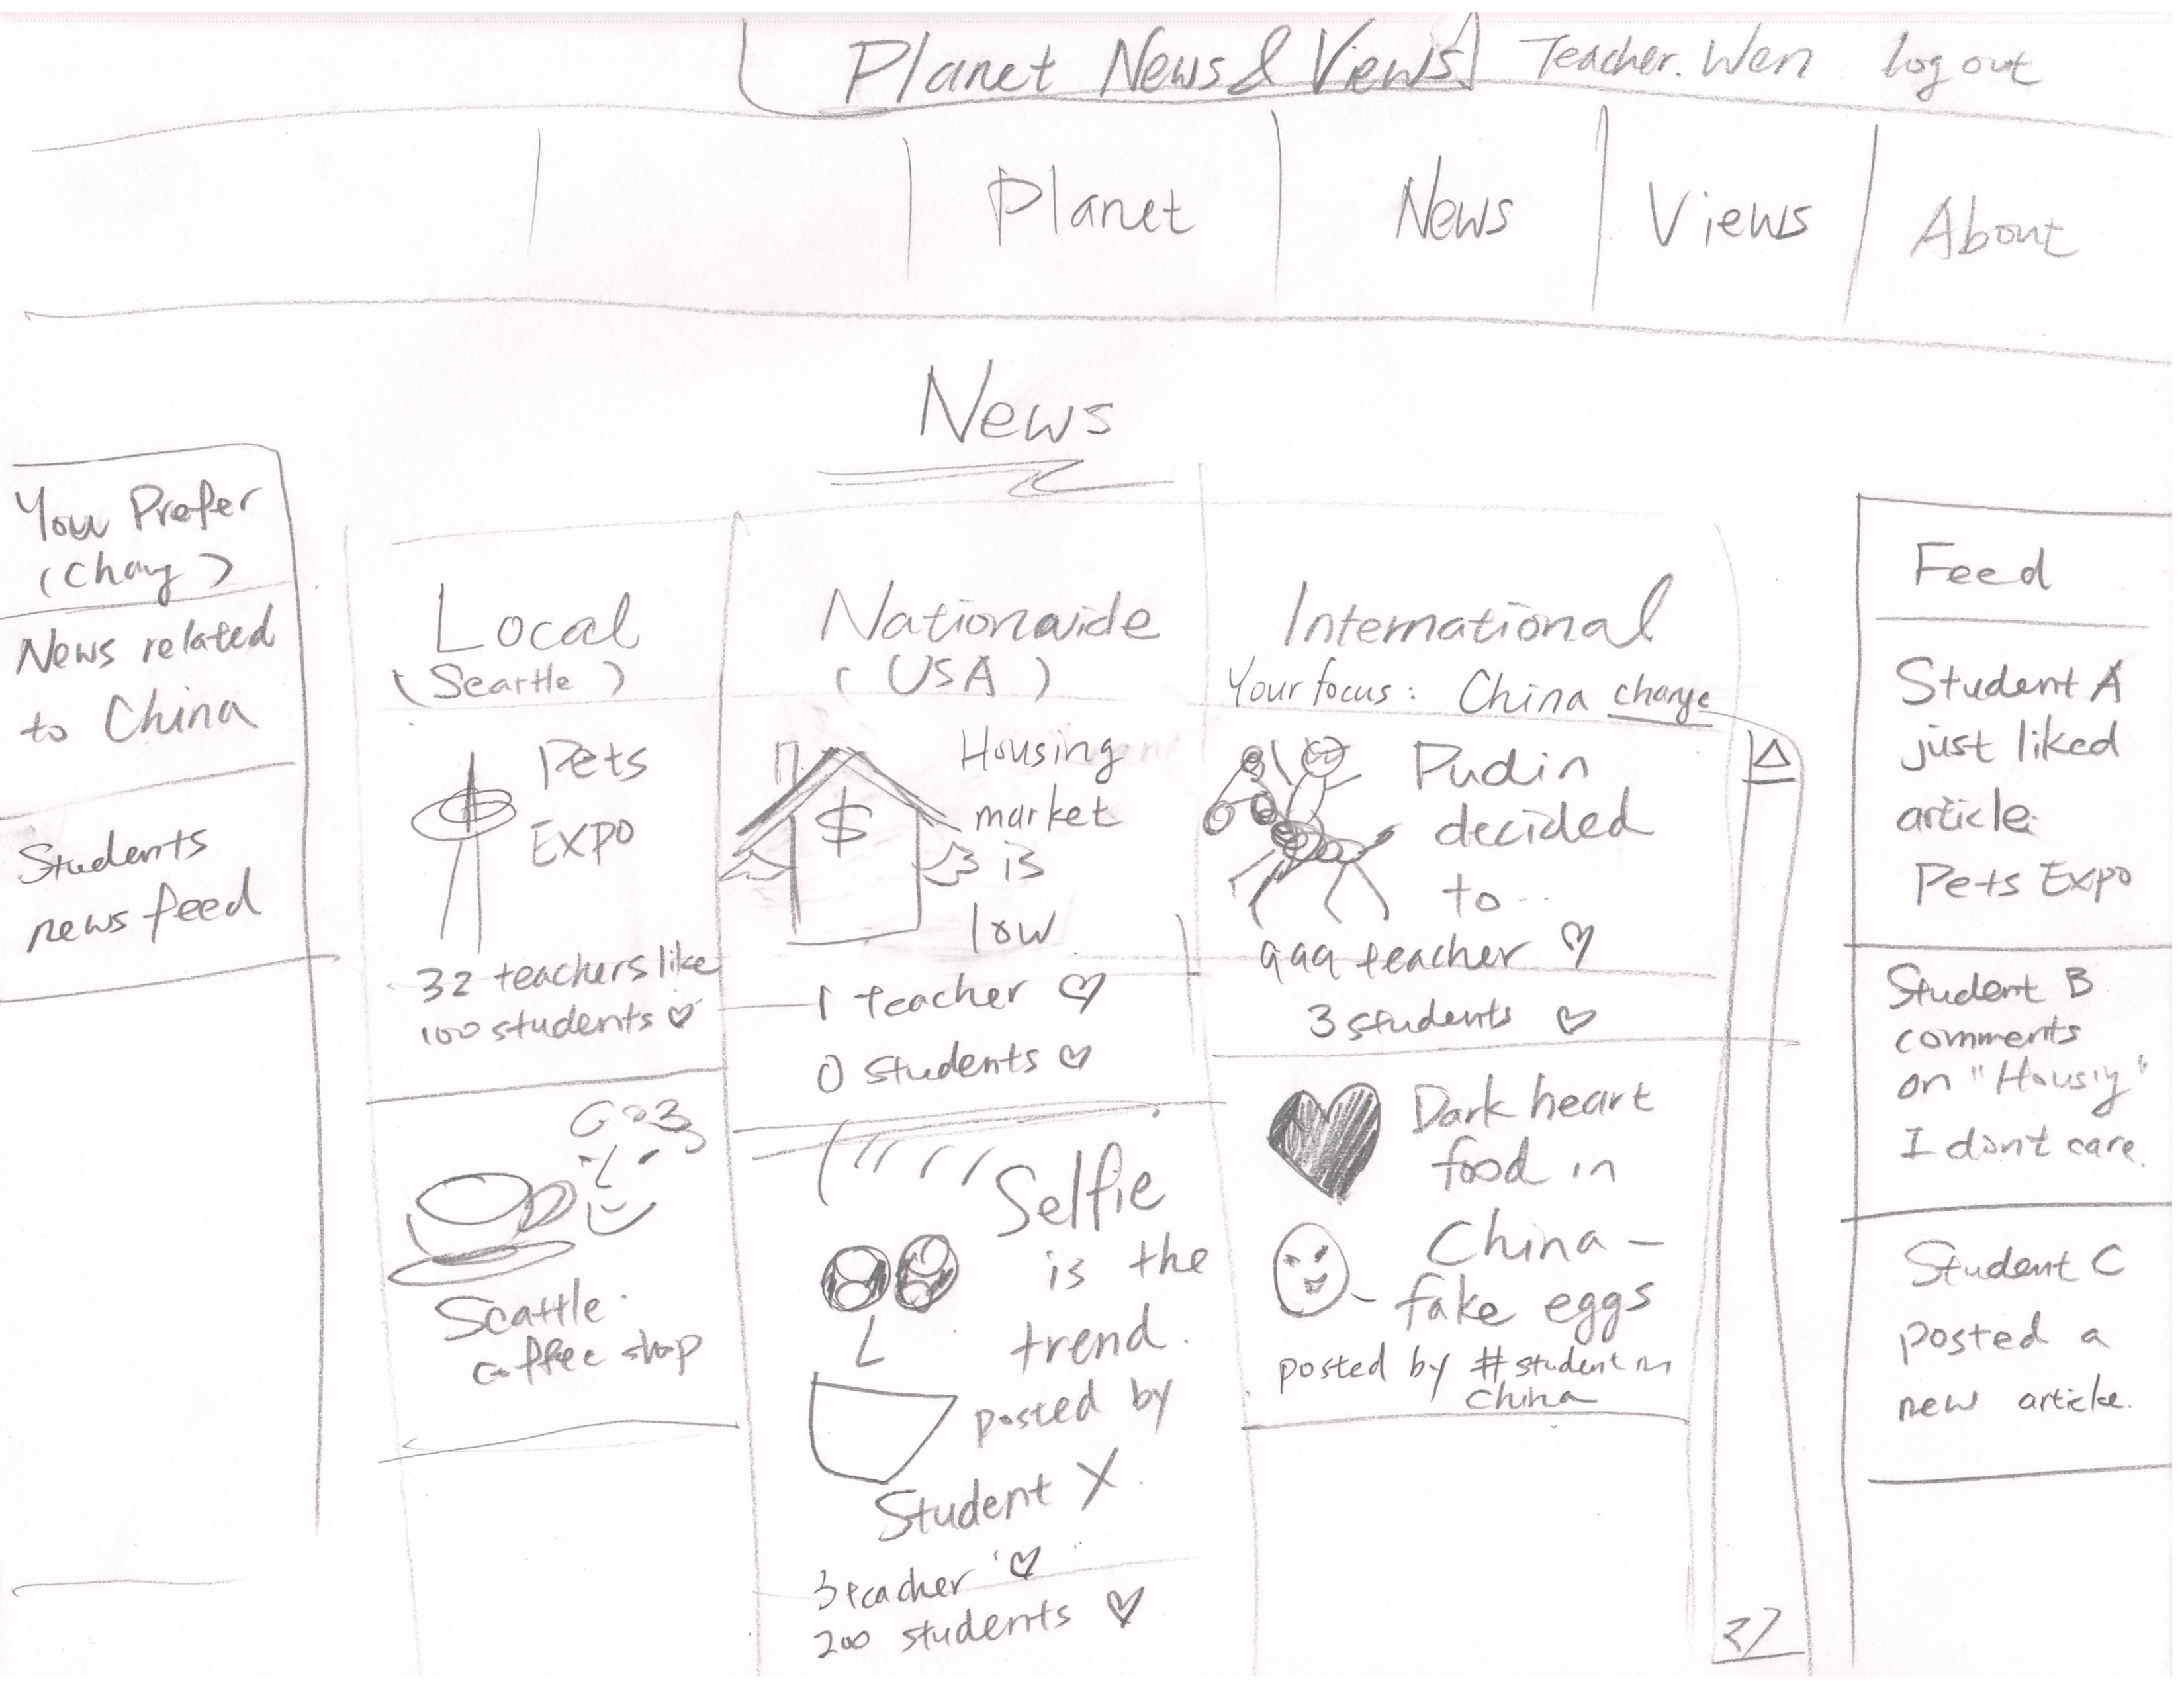 Planet News & Views
Teacher. Wen
log out
Planet
News
Views
About
News
You Prefer
(Chang)
News related
to China
Students
news feed
Local
(Seattle)
Pets
EXPO
32 teachers like
100 students ♡
Seattle
coffee shop
Nationwide
(USA)
$
Housing
market
is
low
1 teacher ♡
0 students ♡
Selfie
is the
trend.
posted by
Student X
3 teacher ♡
200 students ♡
International
Your focus: China change
Pudin
decided
to...
999 teacher ♡
3 students ♡
Dark heart
food in
China -
fake eggs
posted by # student in
China
Feed
Student A
just liked
article:
Pets Expo
Student B
comments
on "Housig"
I dont care.
Student C
posted a
new article.